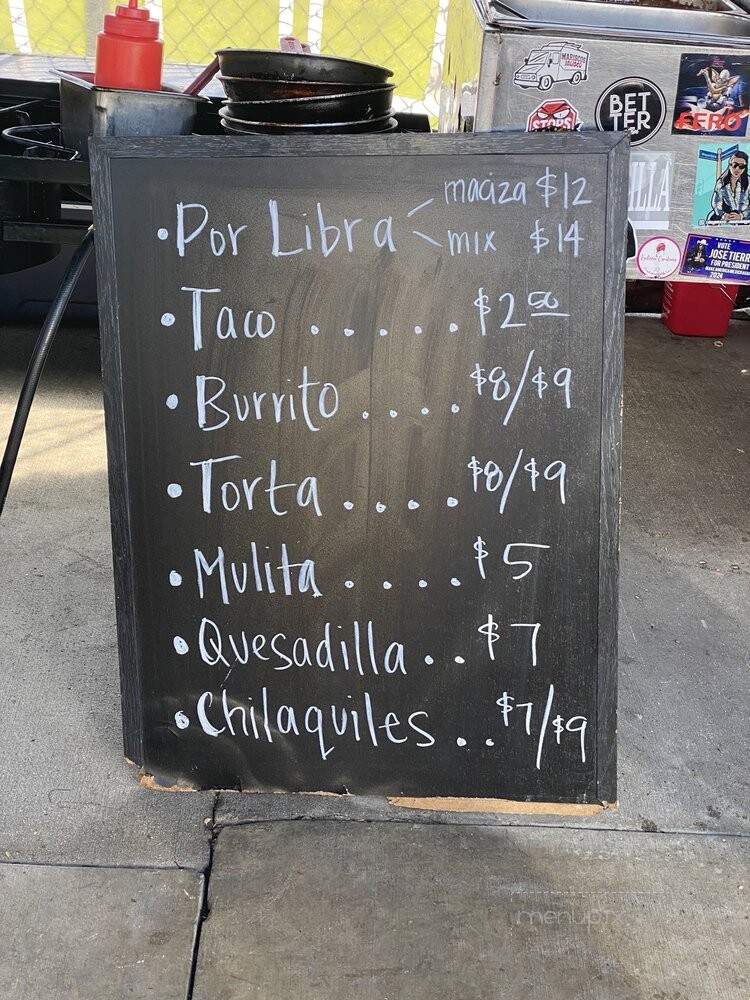 MARISCOS
JALISCO
STOPS!
BET
TER
ZERO
ILLA
VOTE
JOSE TIERR
FOR PRESIDENT
2024
• Por Libra
maciza $12
mix $14
• Taco ..... $2 50
• Burrito .... $8/$9
• Torta .... $8/$9
• Mulita .... $5
• Quesadilla .. $7
• Chilaquiles .. $7/$9
menupix